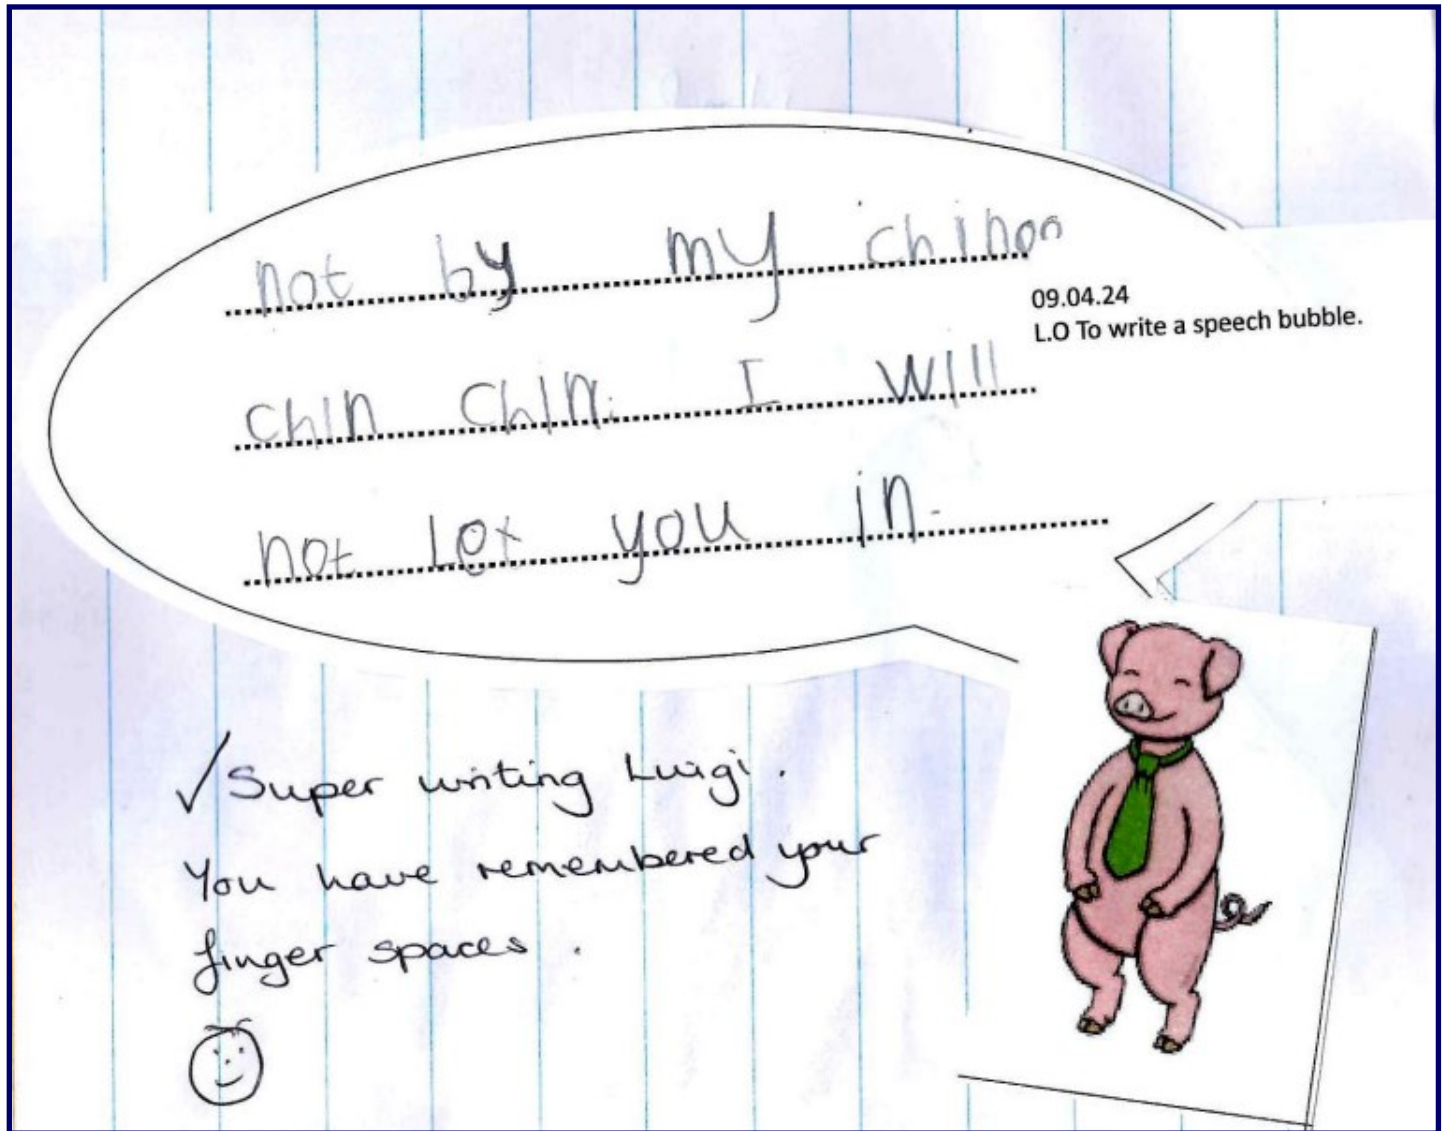 not by my chinon
chin chin. I will
not let you in.
09.04.24
L.O To write a speech bubble.
✓ Super writing Luigi.
You have remembered your
finger spaces.